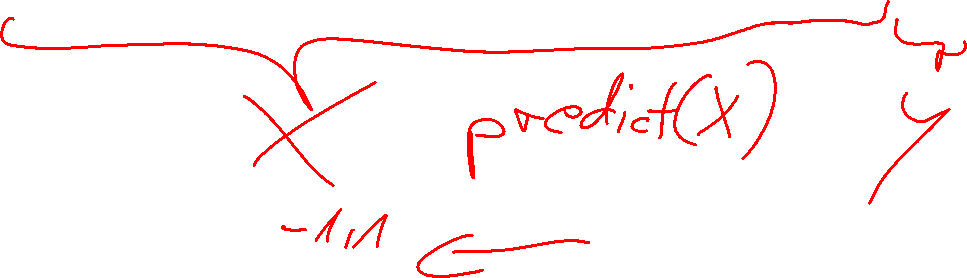 X predict(X) y
-1,1